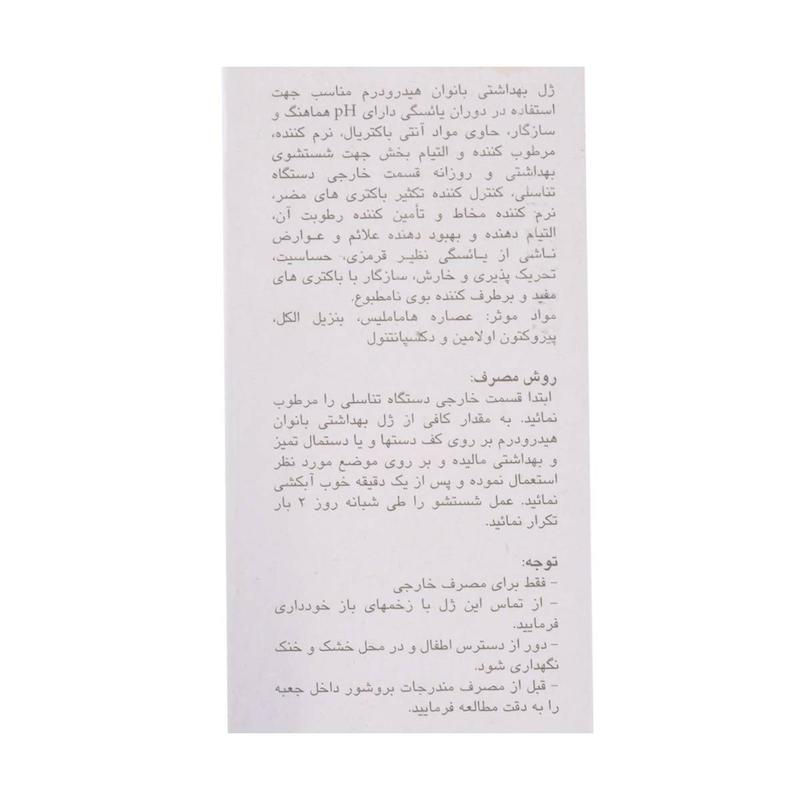 ژل بهداشتی بانوان هیدرودرم مناسب جهت
استفاده در دوران یائسگی دارای pH هماهنگ و
سازگار، حاوی مواد آنتی باکتریال، نرم کننده،
مرطوب کننده و التیام بخش جهت شستشوی
بهداشتی و روزانه قسمت خارجی دستگاه
تناسلی، کنترل کننده تکثیر باکتری های مضر،
نرم کننده مخاط و تأمین کننده رطوبت آن،
التیام دهنده و بهبود دهنده علائم و عوارض
ناشی از یائسگی نظیر قرمزی، حساسیت،
تحریک پذیری و خارش، سازگار با باکتری های
مفید و برطرف کننده بوی نامطبوع.
مواد موثر: عصاره هاماملیس، بنزیل الکل،
پیروکتون اولامین و دکسپانتنول
روش مصرف:
ابتدا قسمت خارجی دستگاه تناسلی را مرطوب
نمائید. به مقدار کافی از ژل بهداشتی بانوان
هیدرودرم بر روی کف دستها و یا دستمال تمیز
و بهداشتی مالیده و بر روی موضع مورد نظر
استعمال نموده و پس از یک دقیقه خوب آبکشی
نمائید. عمل شستشو را طی شبانه روز ۲ بار
تکرار نمائید.
توجه:
- فقط برای مصرف خارجی
- از تماس این ژل با زخمهای باز خودداری
فرمایید.
- دور از دسترس اطفال و در محل خشک و خنک
نگهداری شود.
- قبل از مصرف مندرجات بروشور داخل جعبه
را به دقت مطالعه فرمایید.